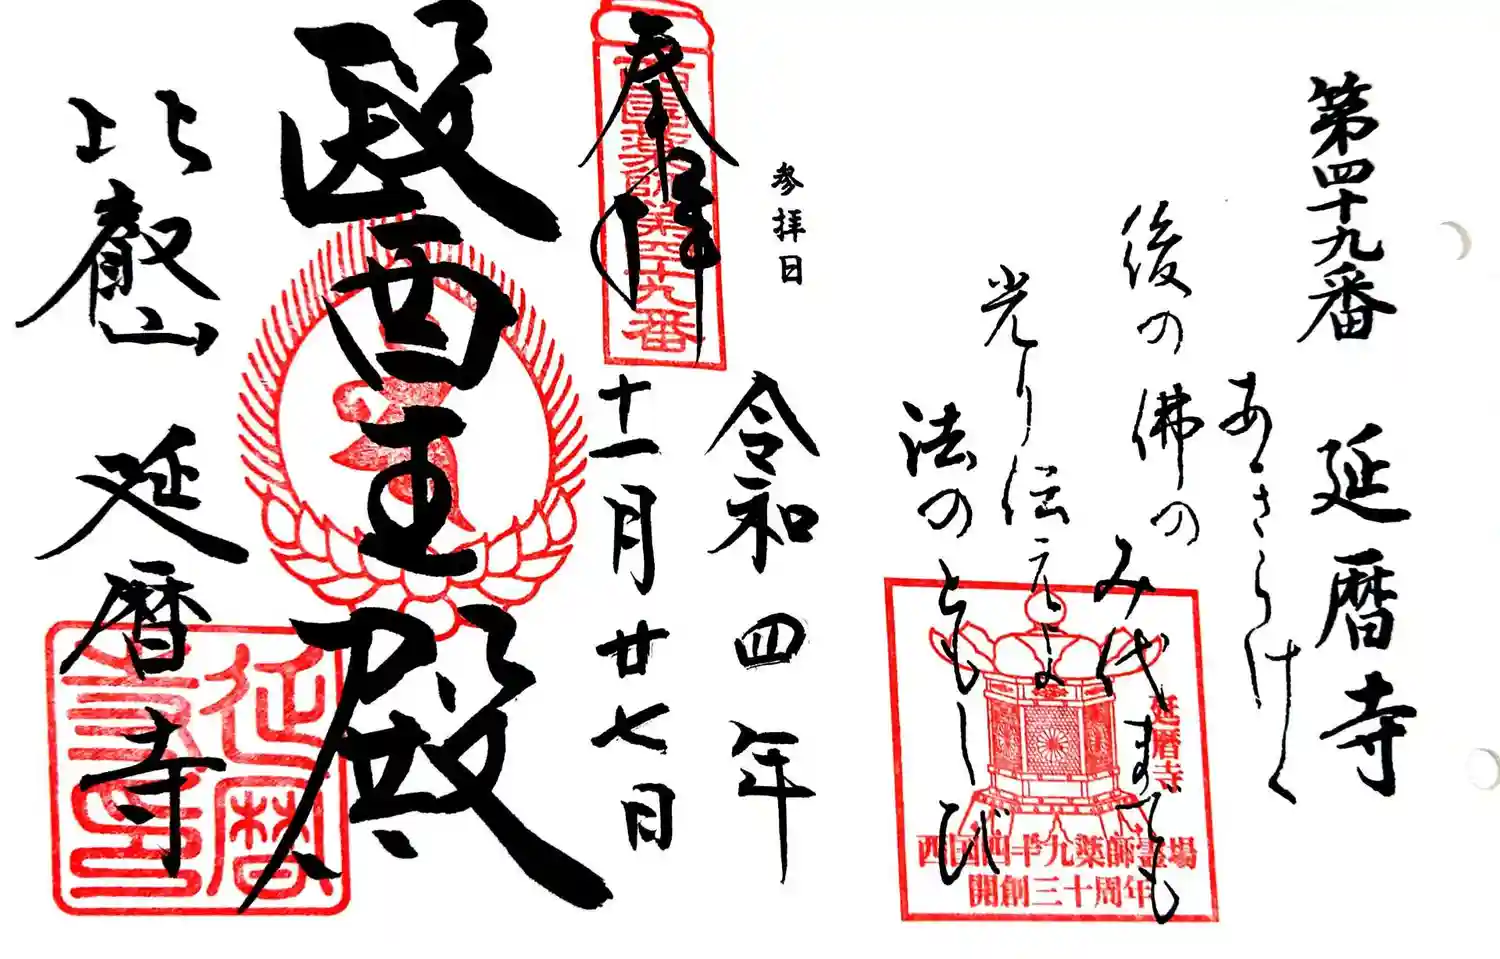 第四十九番 延暦寺
あきらけく
後の佛の み代までも
光り伝えよ
法のともしび
延暦寺
西国四十九薬師霊場
開創三十周年
参拝日
令和四年
十一月廿七日
奉拝
西国薬師第四十九番
醫王殿
比叡山 延暦寺
延暦寺印